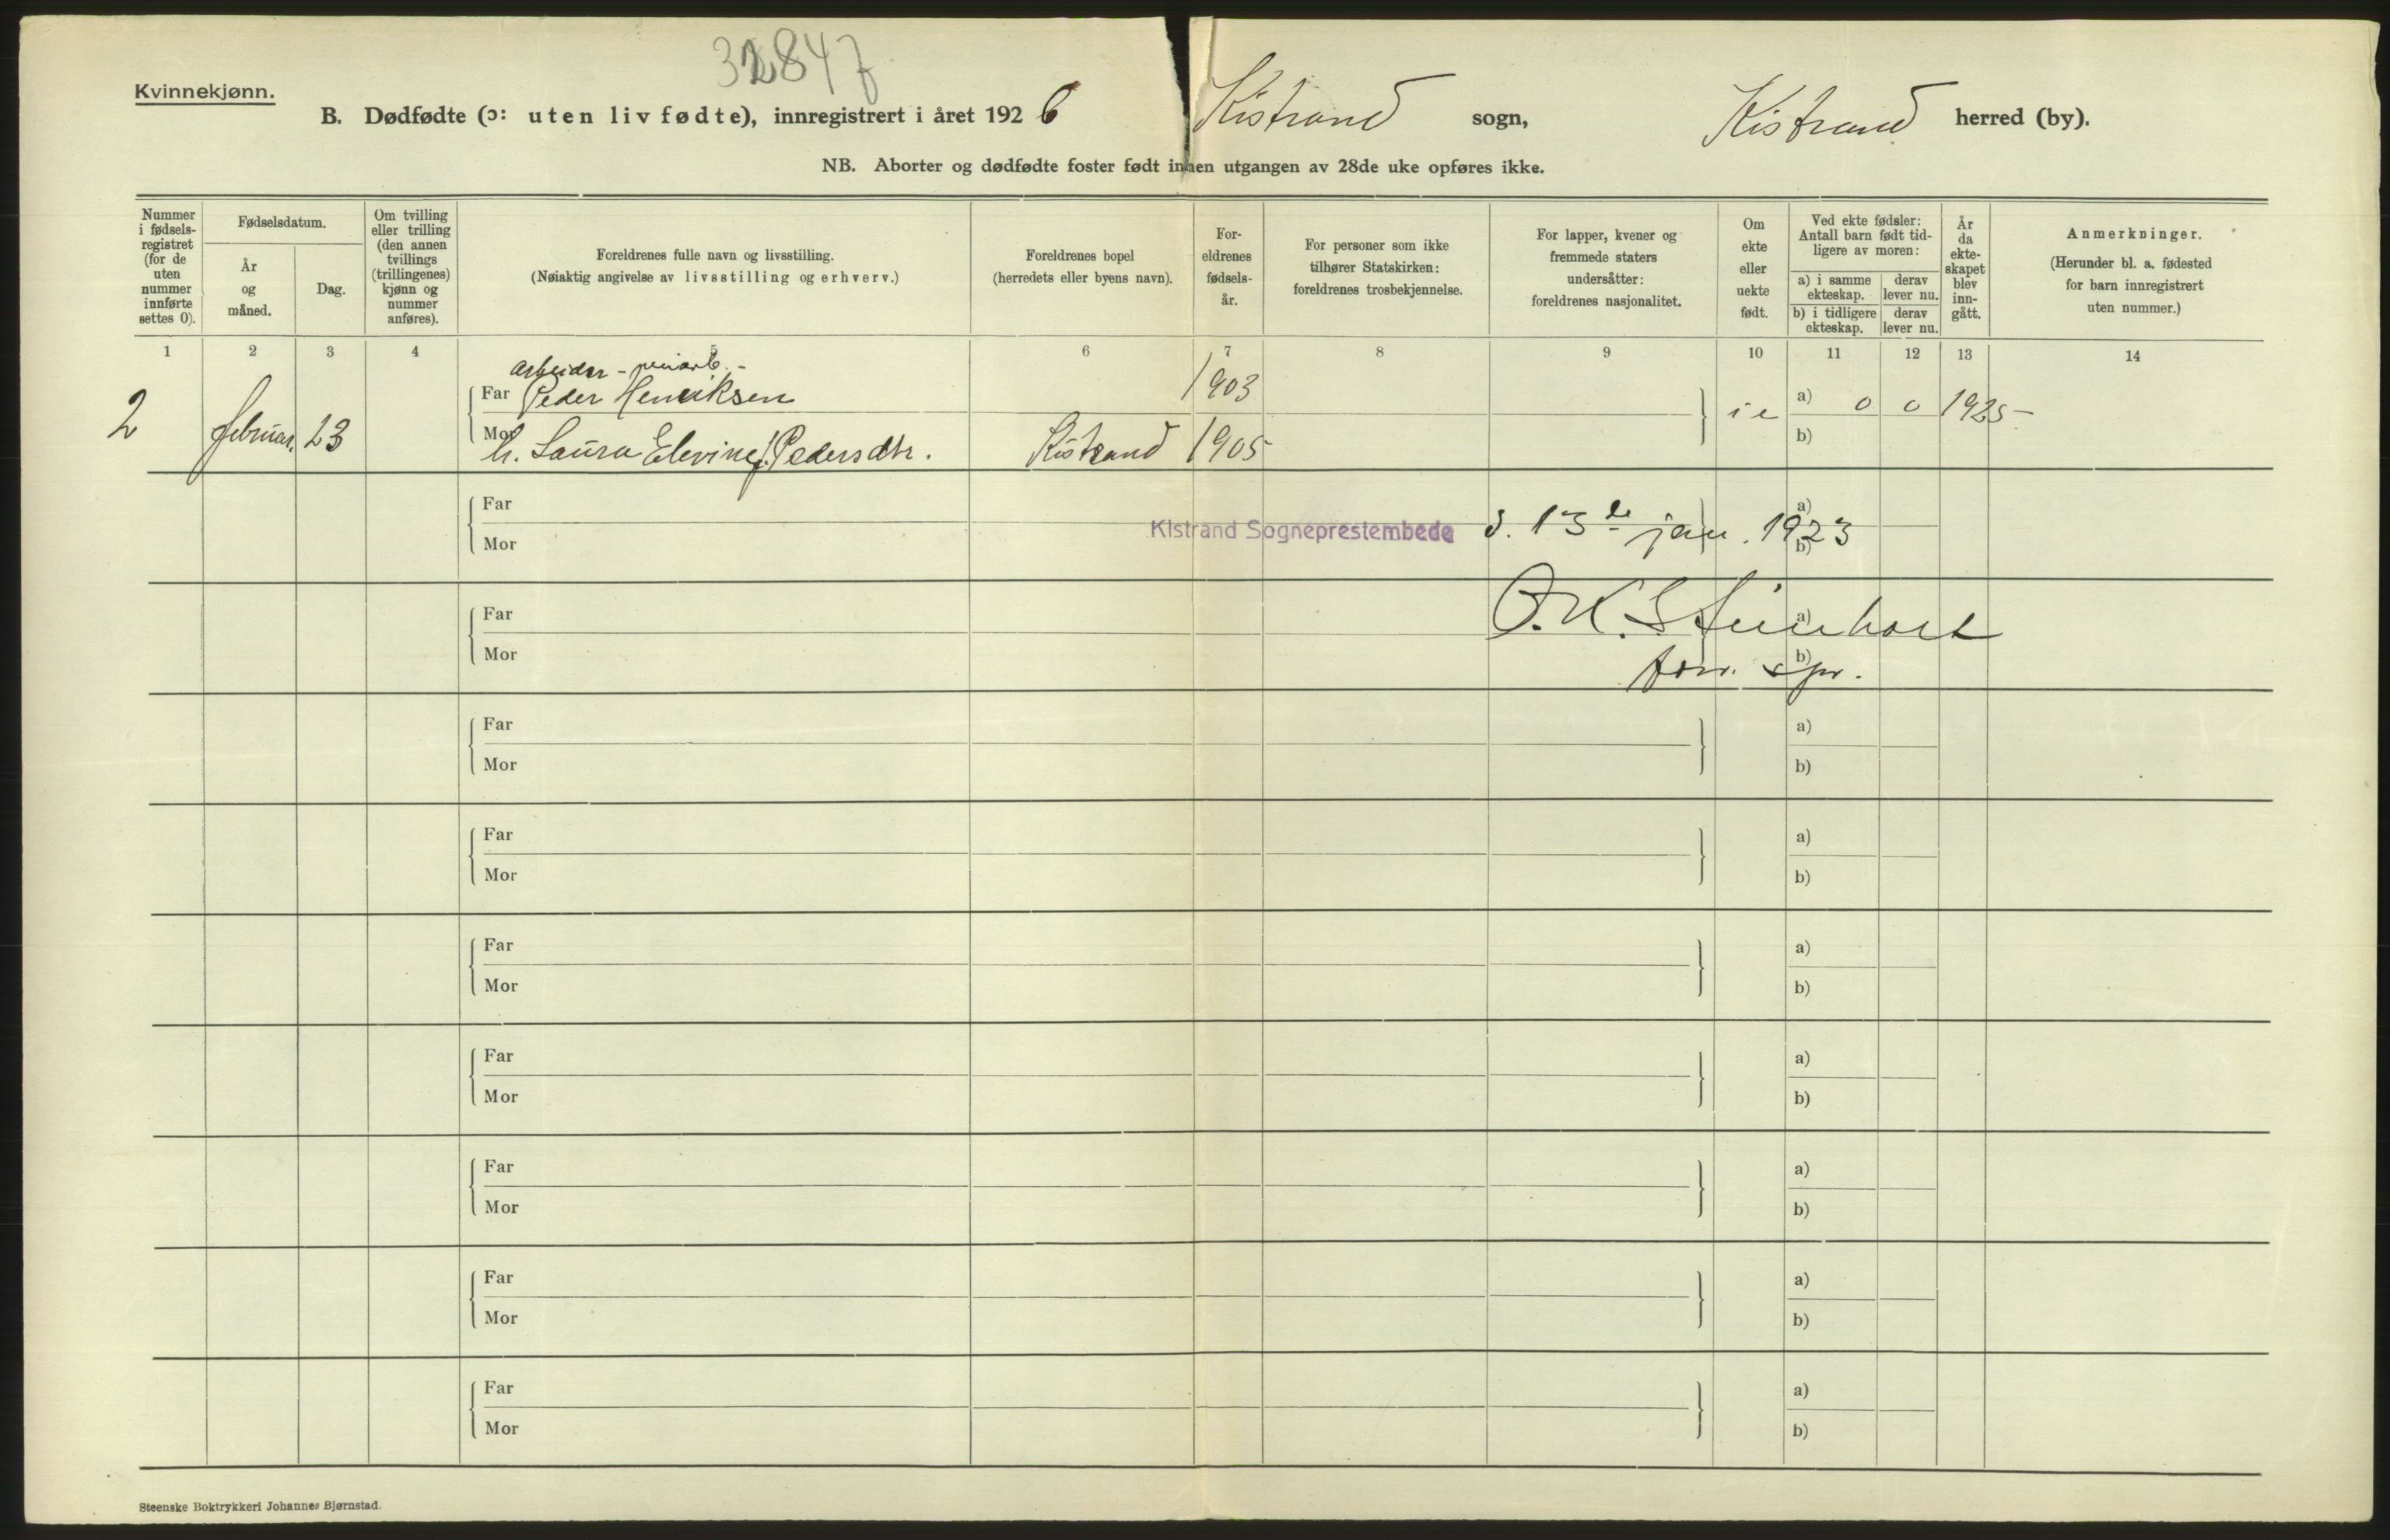 32847
Kvinnekjønn.
B. Dødfødte (ɔ: uten liv fødte), innregistrert i året 1926 Kistrand sogn, Kistrand herred (by).
NB. Aborter og dødfødte foster født innen utgangen av 28de uke opføres ikke.
Nummer i fødsels- registret (for de uten nummer innførte settes 0).
Fødselsdatum.
År og måned.
Dag.
Om tvilling eller trilling (den annen tvillings (trillingenes) kjønn og nummer anføres).
Foreldrenes fulle navn og livsstilling.
(Nøiaktig angivelse av livsstilling og erhverv.)
Foreldrenes bopel
(herredets eller byens navn).
For- eldrenes fødsels- år.
For personer som ikke tilhører Statskirken: foreldrenes trosbekjennelse.
For lapper, kvener og fremmede staters undersåtter: foreldrenes nasjonalitet.
Om ekte eller uekte født.
Ved ekte fødsler: Antall barn født tid- ligere av moren:
a) i samme ekteskap.
derav lever nu.
b) i tidligere ekteskap.
derav lever nu.
År da ekte- skapet blev inn- gått.
Anmerkninger.
(Herunder bl. a. fødested for barn innregistrert uten nummer.)
1 2 3 4 5 6 7 8 9 10 11 12 13 14
arbeider -
2 februar. 23 Far Peder Henriksen 1903 a) 0 0 1925
Mor h. Laura Elevine f. Pedersdtr. Kistrand 1905 b)
Far a)
Kistrand Sogneprestembede d. 13de jan. 1923
Mor b)
Far a)
O. K. Steinholt
Mor b)
spr.
Far a)
Mor b)
Far a)
Mor b)
Far a)
Mor b)
Far a)
Mor b)
Far a)
Mor b)
Far a)
Mor b)
Far a)
Mor b)
Steenske Boktrykkeri Johannes Bjørnstad.